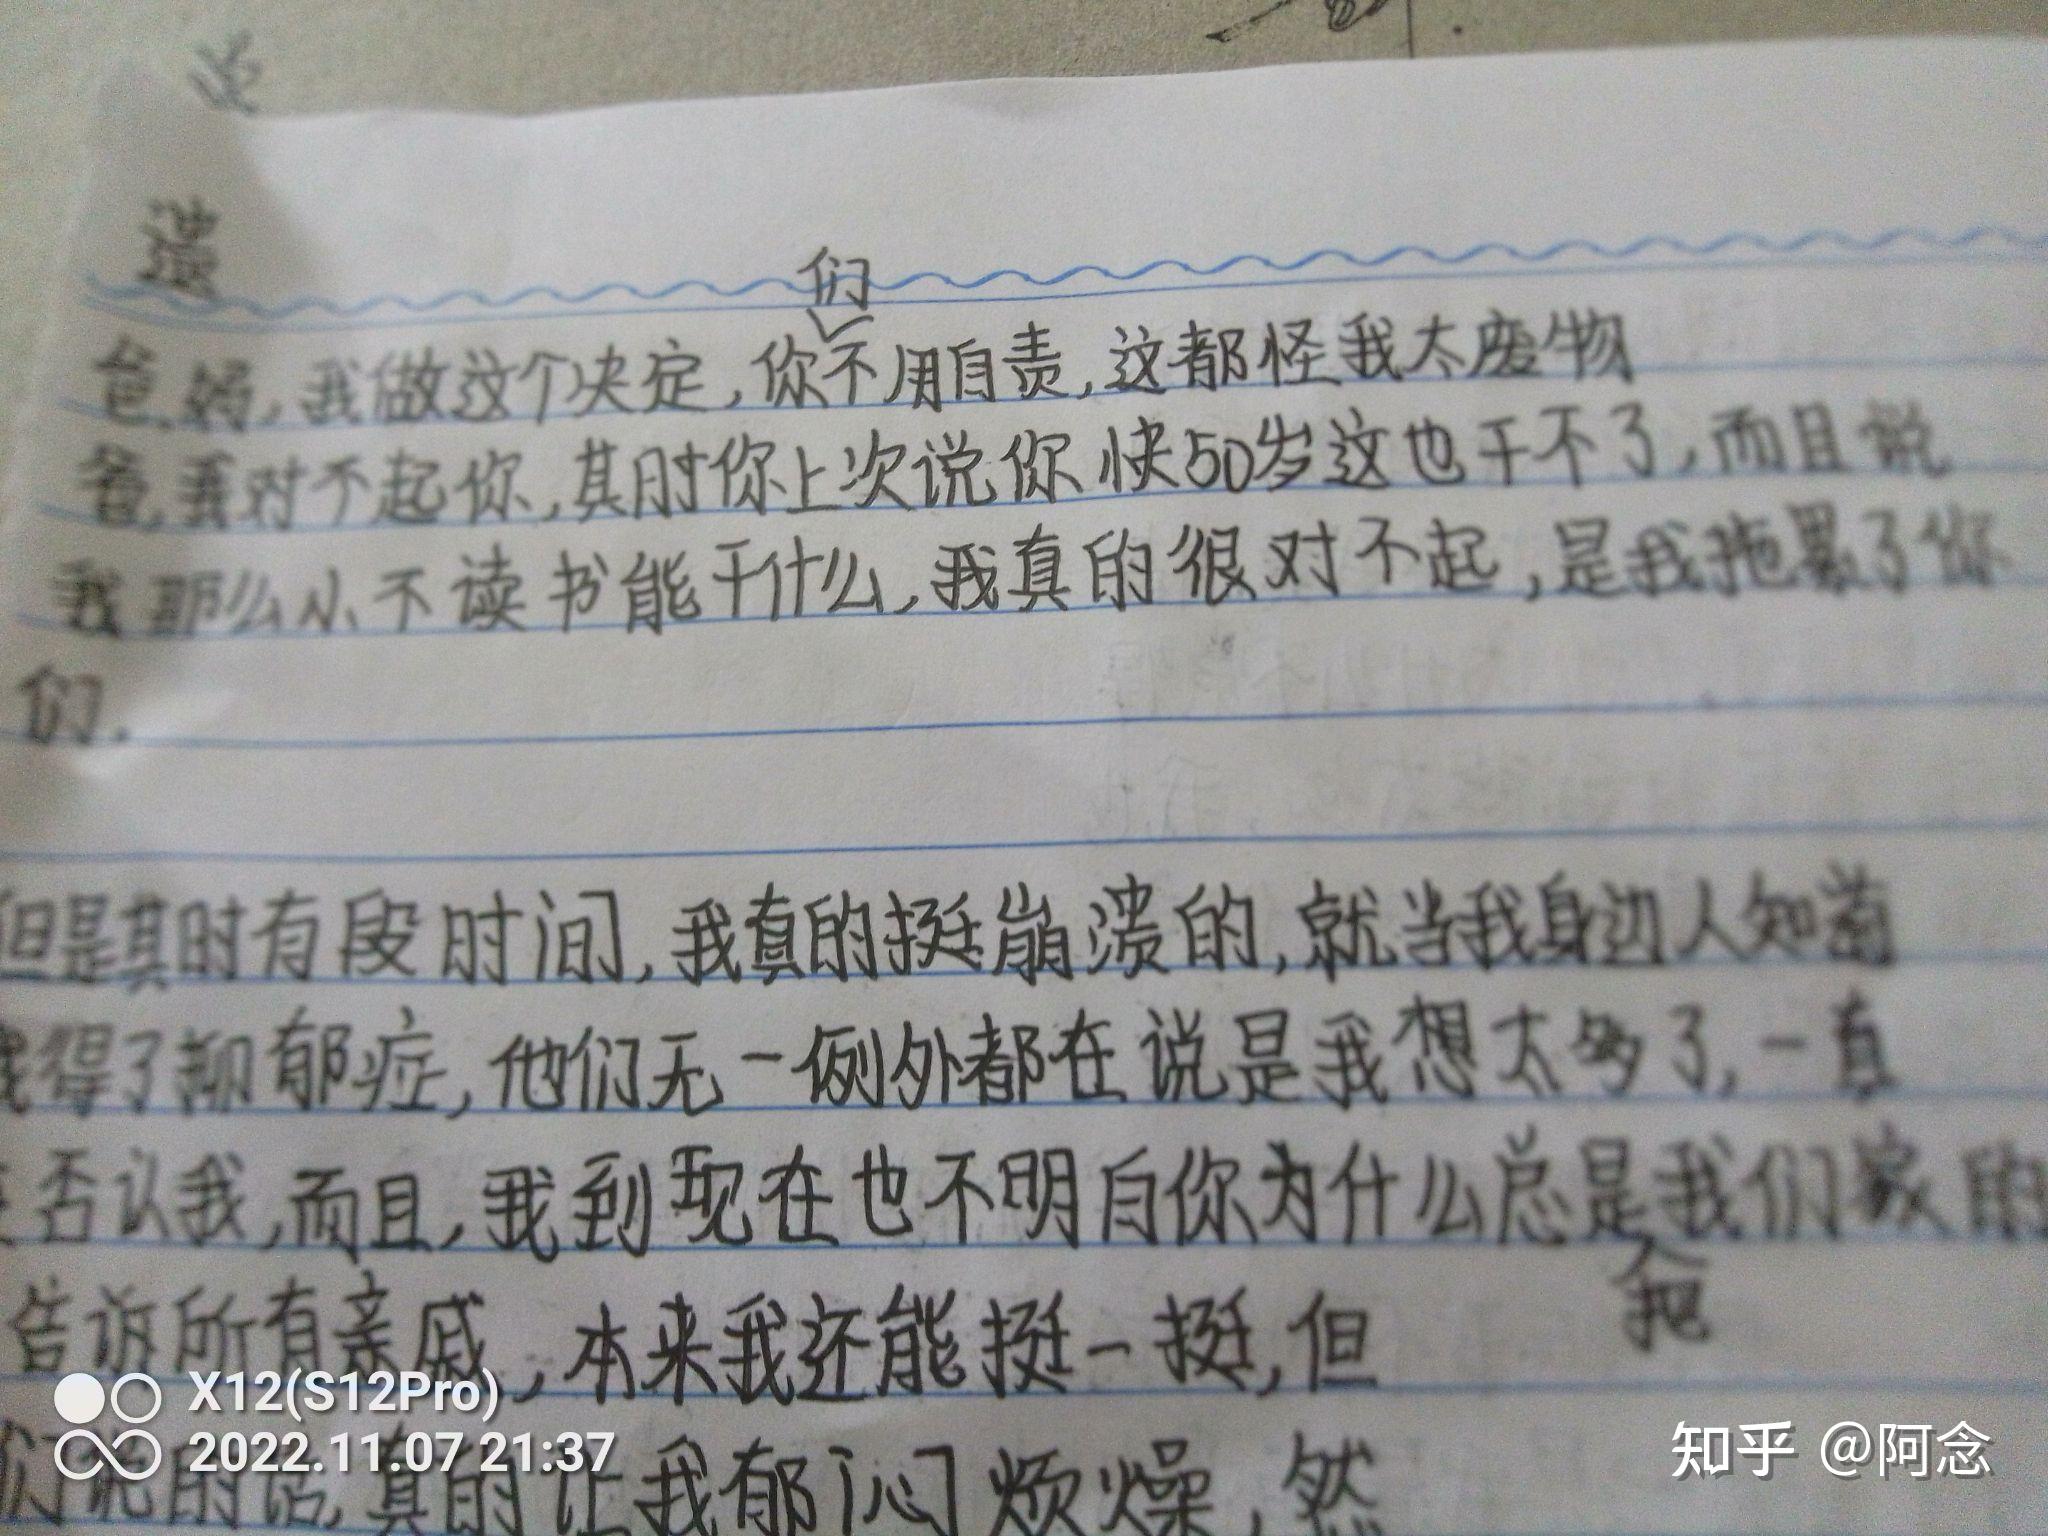 遗
们
爸,妈,我做这个决定,你不用自责,这都怪我太废物
爸,我对不起你,其时你上次说你快50岁这也干不了,而且说
我那么小不读书能干什么,我真的很对不起,是我拖累了你
们.
但是其时有段时间,我真的挺崩溃的,就当我身边人知道
我得了抑郁症,他们无一例外都在说是我想太多了,一直
否认我,而且,我到现在也不明白你为什么总是我们家的
把
告诉所有亲戚,本来我还能挺一挺,但
们说的话,真的让我郁闷烦燥,然
X12(S12Pro)
2022.11.07 21:37
知乎 @阿念